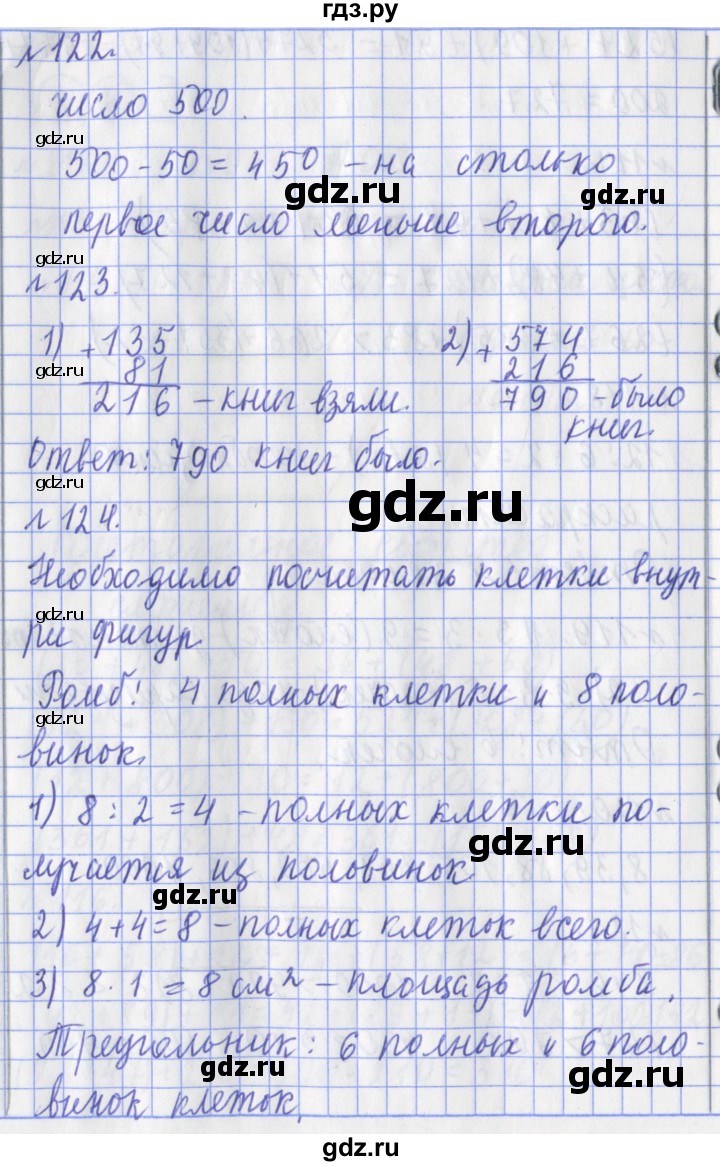 гдз.ру
№122.
число 500.
gdz.ru
500-50=450 -на столько
gdz.ru
gdz.ru
первое число меньше второго.
gdz.ru
№123.
1) +135 2) +574
gdz.ru
81 216
216 -книг взяли. 790 -было
книг.
Ответ: 790 книг было.
gdz.ru
gdz.ru
№124.
Необходимо посчитать клетки внут-
gdz.ru
ри фигур
Ромб: 4 полных клетки и 8 поло-
gdz.ru
винок.
1) 8:2=4 -полных клетки по-
gdz.ru
лучается из половинок.
gdz.ru
2) 4+4=8 -полных клеток всего.
3) 8·1=8см² -площадь ромба.
gdz.ru
Треугольник: 6 полных и 6 поло-
gdz.ru
gdz.ru
винок клеток.
gdz.ru